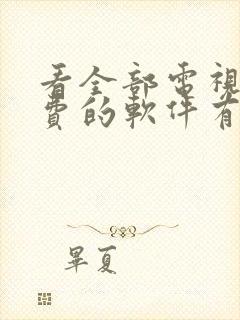 看全部電視
費的軟件有
畢夏